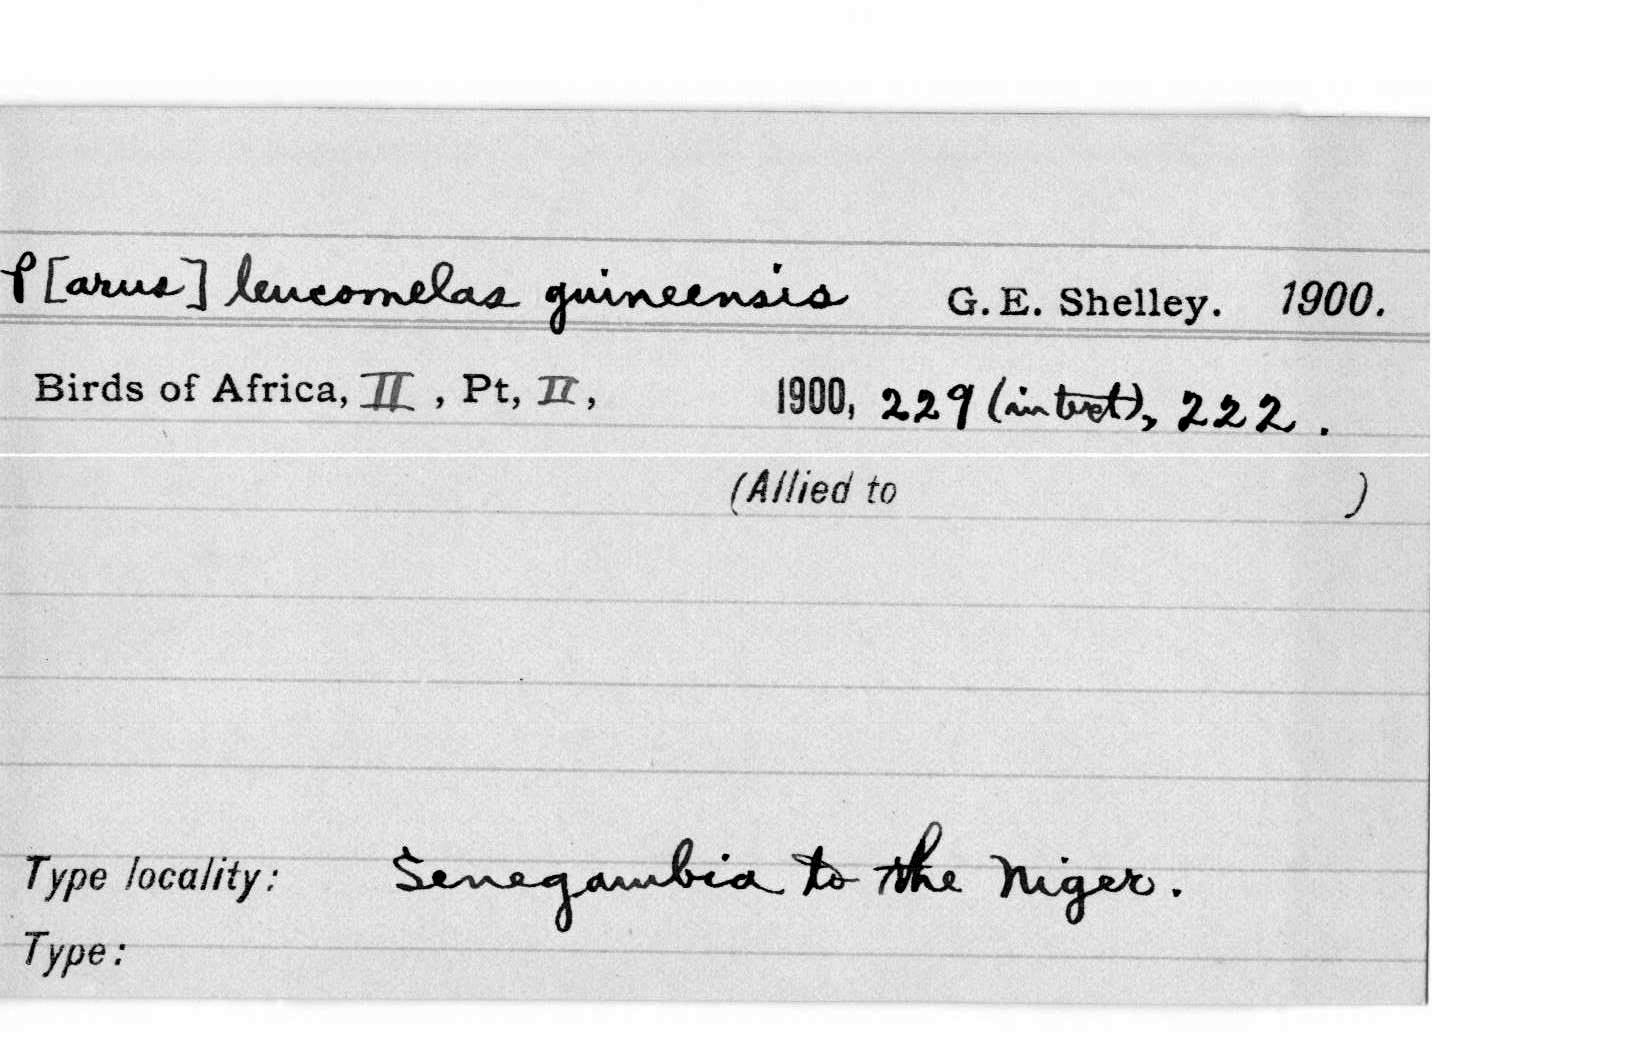 P[arus] leucomelas guineensis G. E. Shelley. 1900.
Birds of Africa, II , Pt, II, 1900, 229 (in text), 222 .
(Allied to )
Type locality: Senegambia to the Niger.
Type: